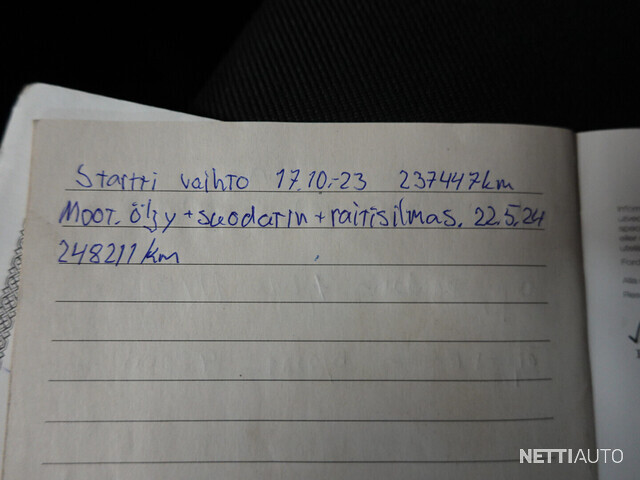 Startti vaihto 17.10.-23 237447km
Moot. öljy + suodatin + raitisilmas. 22.5.24
248211 km
NETTIAUTO